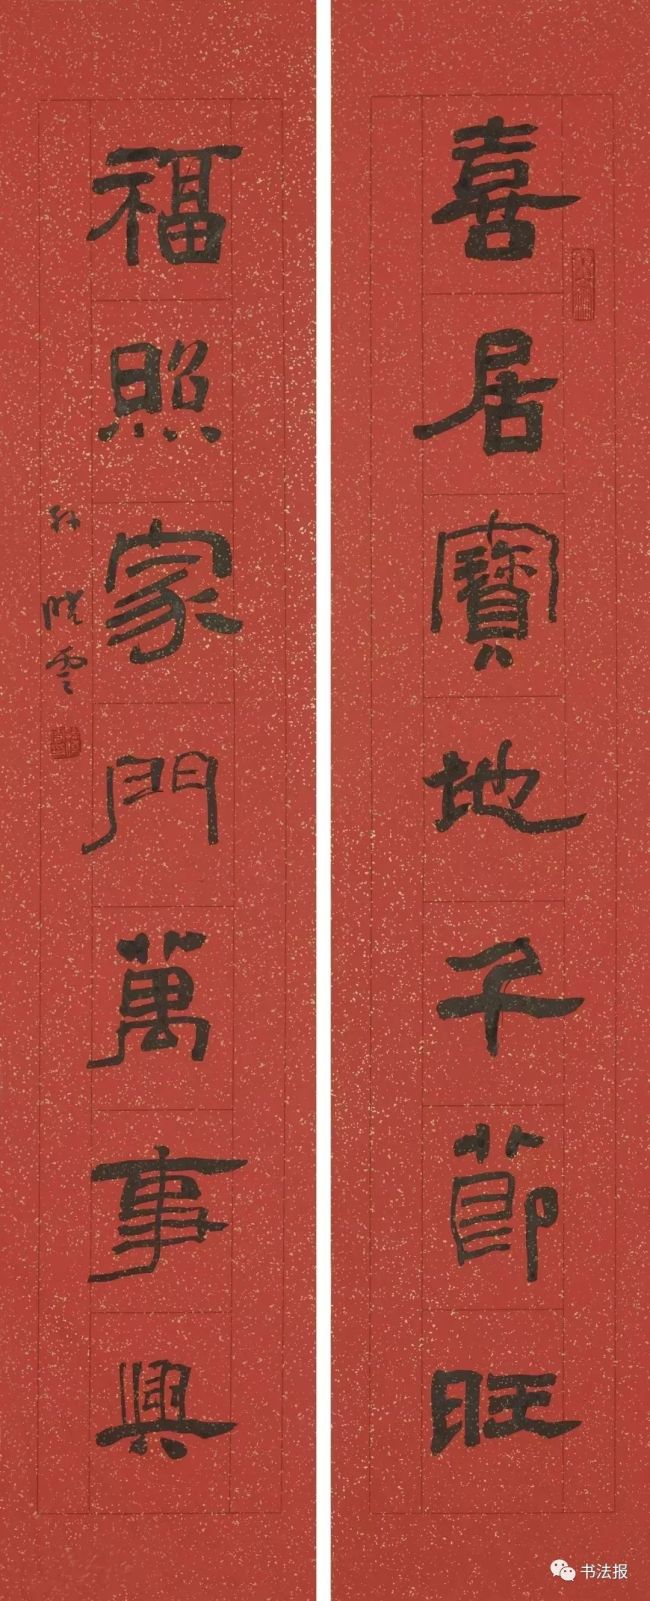 喜居寶地千節旺
福照家門萬事興
孙晓雲
书法报